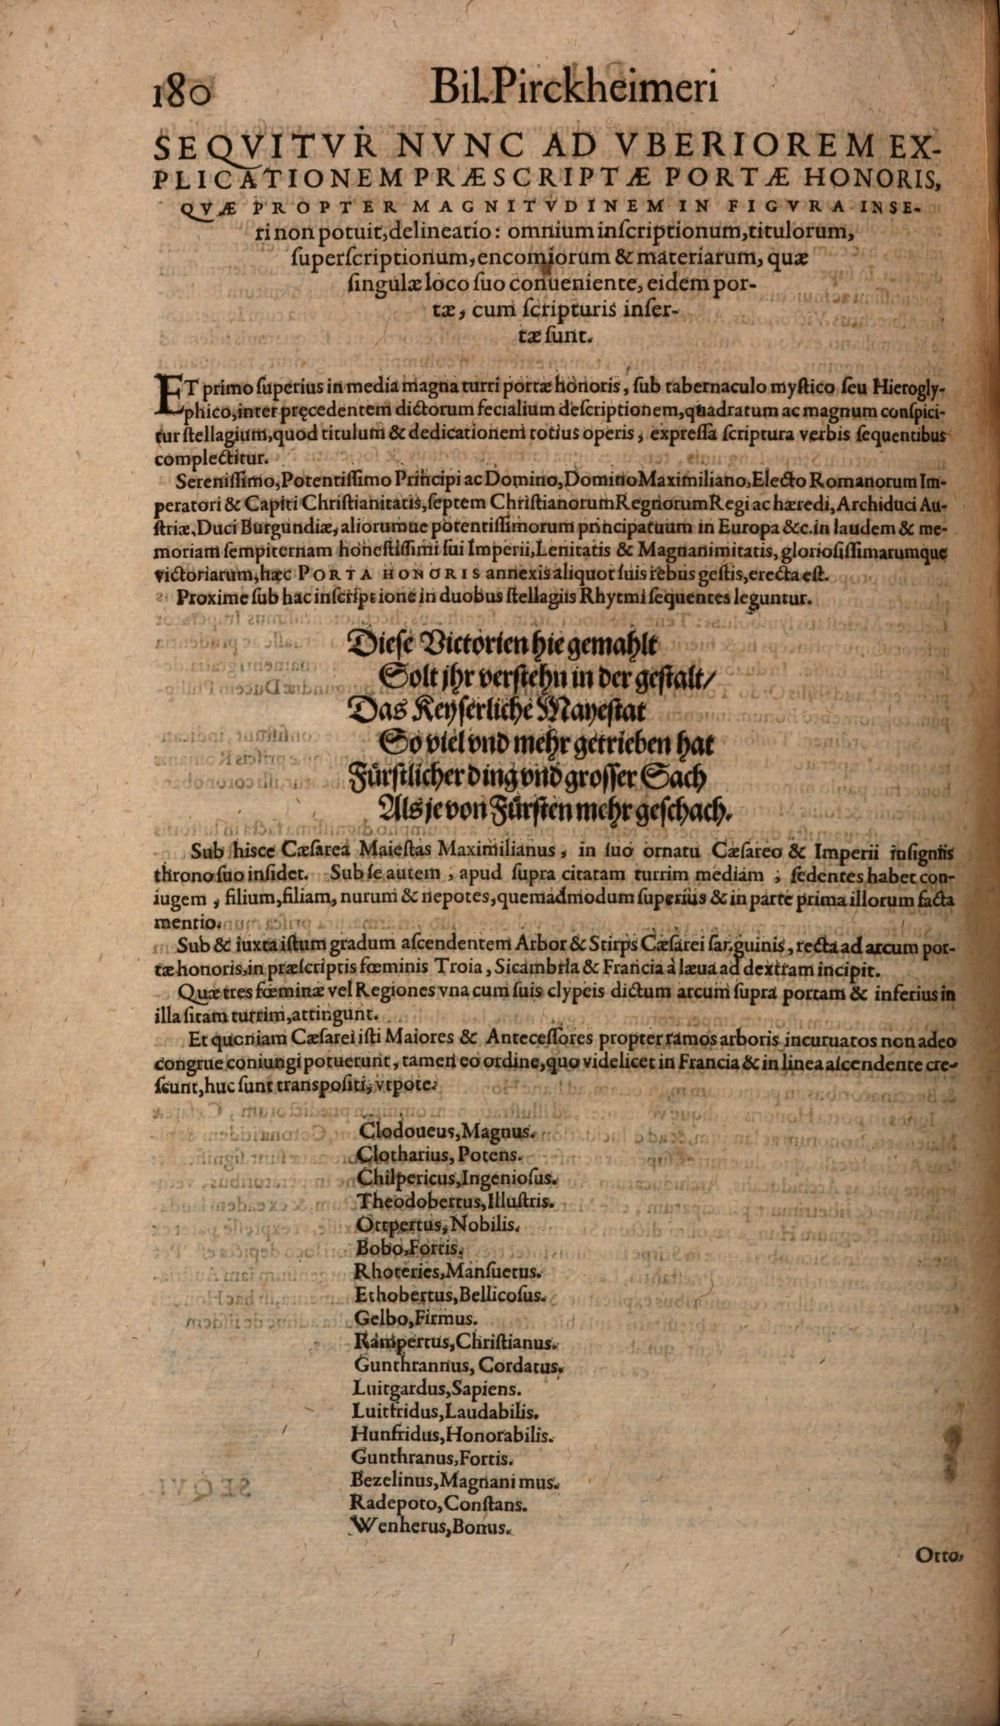 180 Bil. Pirckheimeri
SEQVITVR NVNC AD VBERIOREM EX-
PLICATIONEM PRÆSCRIPTÆ PORTÆ HONORIS,
QVÆ PROPTER MAGNITVDINEM IN FIGVRA INSE-
ri non potuit, delineatio: omnium inſcriptionum, titulorum,
ſuperſcriptionum, encomiorum & materiarum, quæ
ſingulæ loco ſuo conueniente, eidem por-
tæ, cum ſcripturis inſer-
tæ ſunt.
ET primo ſuperius in media magna turri portæ honoris, ſub tabernaculo myſtico ſeu Hierogly-
phico, inter pręcedentem dictorum fecialium deſcriptionem, quadratum ac magnum conſpici-
tur ſtellagium, quod titulum & dedicationem totius operis, expreſſa ſcriptura verbis ſequentibus
complectitur.
Sereniſſimo, Potentiſſimo Principi ac Domino, Domino Maximiliano, Electo Romanorum Im-
peratori & Capiti Chriſtianitatis, ſeptem Chriſtianorum Regnorum Regi ac hæredi, Archiduci Au-
ſtriæ, Duci Burgundiæ, aliorumue potentiſſimorum principatuum in Europa &c. in laudem & me-
moriam ſempiternam honeſtiſſimi ſui Imperii, Lenitatis & Magnanimitatis, glorioſiſſimarumque
victoriarum, hæc PORTA HONORIS annexis aliquot ſuis rebus geſtis, erecta eſt.
Proxime ſub hac inſcriptione in duobus ſtellagiis Rhytmi ſequentes leguntur.
Dieſe Victorien hie gemahlt
Solt jhr verſtehn in der geſtalt/
Das Keyſerliche Mayeſtat
So viel vnd mehr getrieben hat
Fürſtlicher ding vnd groſſer Sach
Als je von Fürſten mehr geſchach.
Sub hisce Cæſarea Maieſtas Maximilianus, in ſuo ornatu Cæſareo & Imperii inſigniis
throno ſuo inſidet. Sub ſe autem, apud ſupra citatam turrim mediam, ſedentes habet con-
iugem, filium, filiam, nurum & nepotes, quemadmodum ſuperius & in parte prima illorum facta
mentio.
Sub & iuxta iſtum gradum aſcendentem Arbor & Stirps Cæſarei ſanguinis, recta ad arcum por-
tæ honoris, in præſcriptis fœminis Troia, Sicambria & Francia à læua ad dextram incipit.
Quæ tres fœminæ vel Regiones vna cum ſuis clypeis dictum arcum ſupra portam & inferius in
illa ſitam turrim, attingunt.
Et quoniam Cæſarei iſti Maiores & Anteceſſores propter ramos arboris incuruatos non adeo
congrue coniungi potuerunt, tamen eo ordine, quo videlicet in Francia & in linea aſcendente cre-
ſcunt, huc ſunt transpoſiti, vtpote:
Clodoueus, Magnus.
Clotharius, Potens.
Chilpericus, Ingenioſus.
Theodobertus, Illuſtris.
Ottpertus, Nobilis.
Bobo, Fortis.
Rhoteries, Manſuetus.
Ethobertus, Bellicoſus.
Gelbo, Firmus.
Rampertus, Chriſtianus.
Gunthrannus, Cordatus.
Luitgardus, Sapiens.
Luitfridus, Laudabilis.
Hunfridus, Honorabilis.
Gunthranus, Fortis.
Bezelinus, Magnanimus.
Radepoto, Conſtans.
Wenherus, Bonus.
Otto,